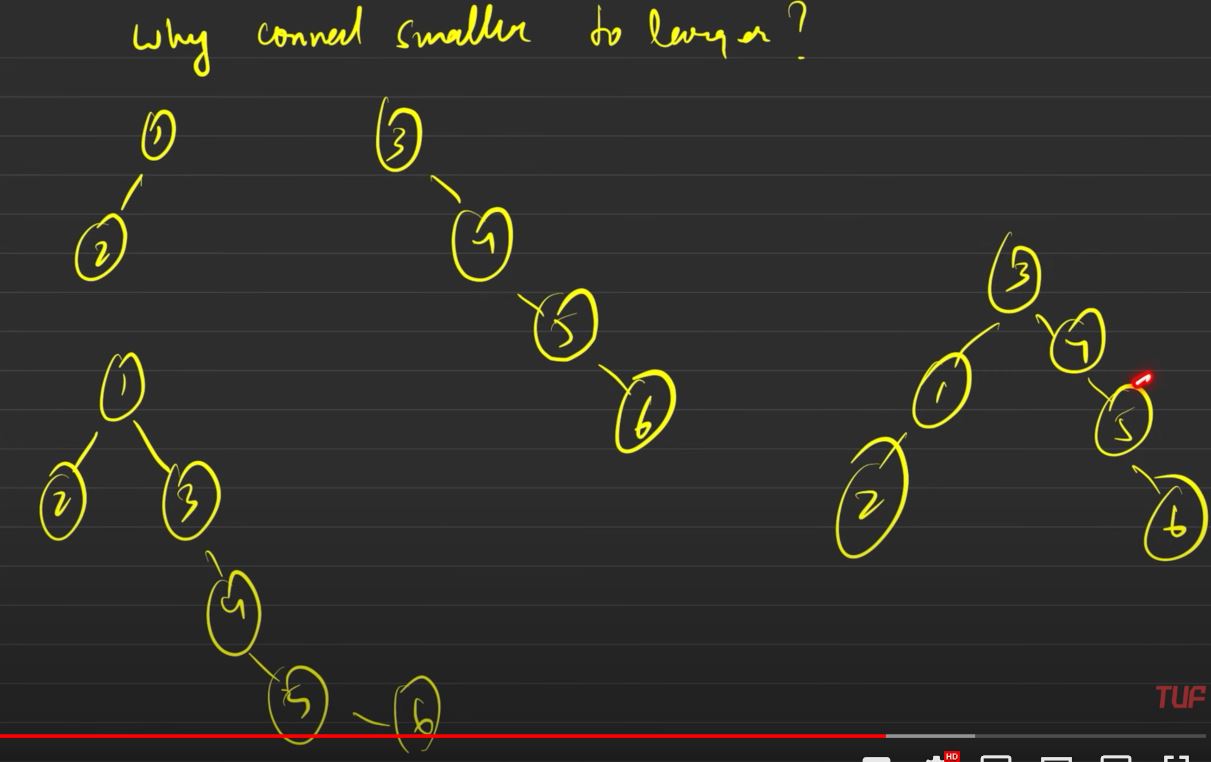 Why connect smaller to larger?
1
3
2
4
5
6
1
2
3
4
5
6
3
1
4
2
5
6
TUF
HD